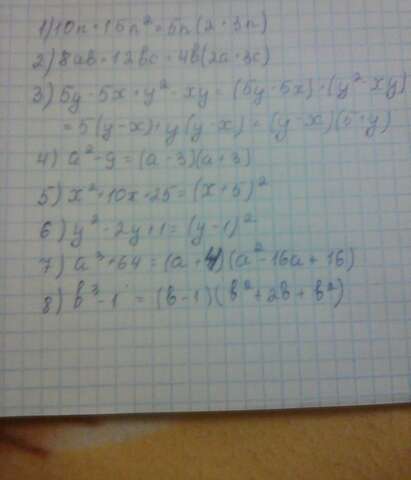 1) 10n + 15n² = 5n(2 + 3n)
2) 8ab + 12bc = 4b(2a + 3c)
3) 5y - 5x + y² - xy = (5y - 5x) + (y² - xy)
= 5(y - x) + y(y - x) = (y - x)(5 + y)
4) a² - 9 = (a - 3)(a + 3)
5) x² + 10x + 25 = (x + 5)²
6) y² - 2y + 1 = (y - 1)²
7) a³ + 64 = (a + 4)(a² - 16a + 16)
8) b³ - 1 = (b - 1)(b² + 2b + b²)